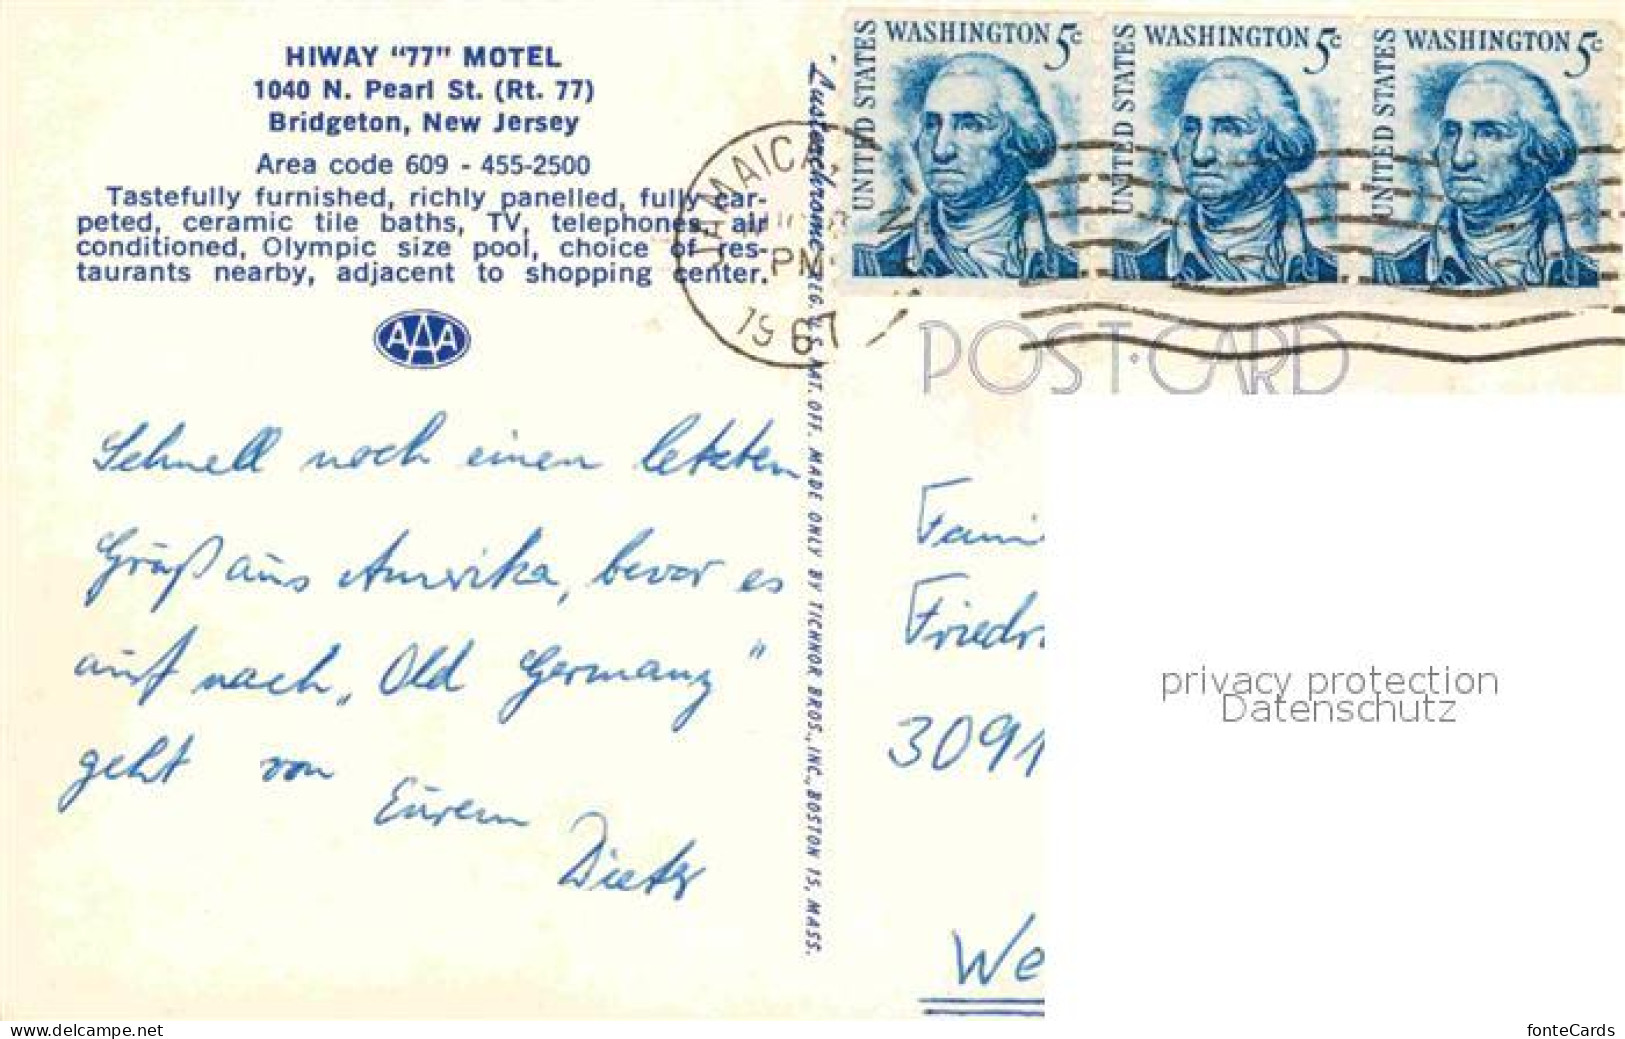 HIWAY "77" MOTEL
1040 N. Pearl St. (Rt. 77)
Bridgeton, New Jersey
Area code 609 - 455-2500
Tastefully furnished, richly panelled, fully car-
peted, ceramic tile baths, TV, telephones, air
conditioned, Olympic size pool, choice of res-
taurants nearby, adjacent to shopping center.
AAA
Schnell noch einen letzten
Gruß aus Amerika, bevor es
auf nach „Old Germany"
geht von
Eurem
Dieter
"Lusterchrome" REG. U. S. PAT. OFF. MADE ONLY BY TICHNOR BROS., INC., BOSTON 15, MASS.
JAMAICA
PM
1967
UNITED STATES WASHINGTON 5c
UNITED STATES WASHINGTON 5c
UNITED STATES WASHINGTON 5c
POST·CARD
Fami
Friedr
3091
We
privacy protection
Datenschutz
www.delcampe.net
fonteCards